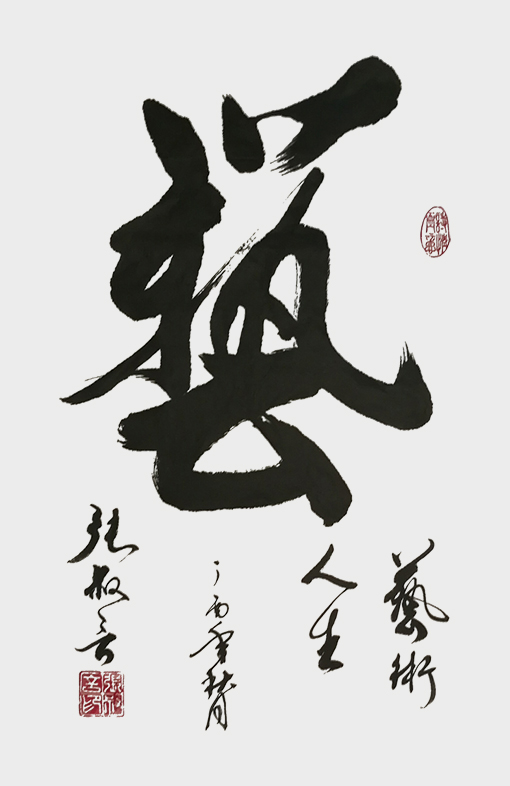 藝
藝術
人生
丁酉年秋月
張叔言